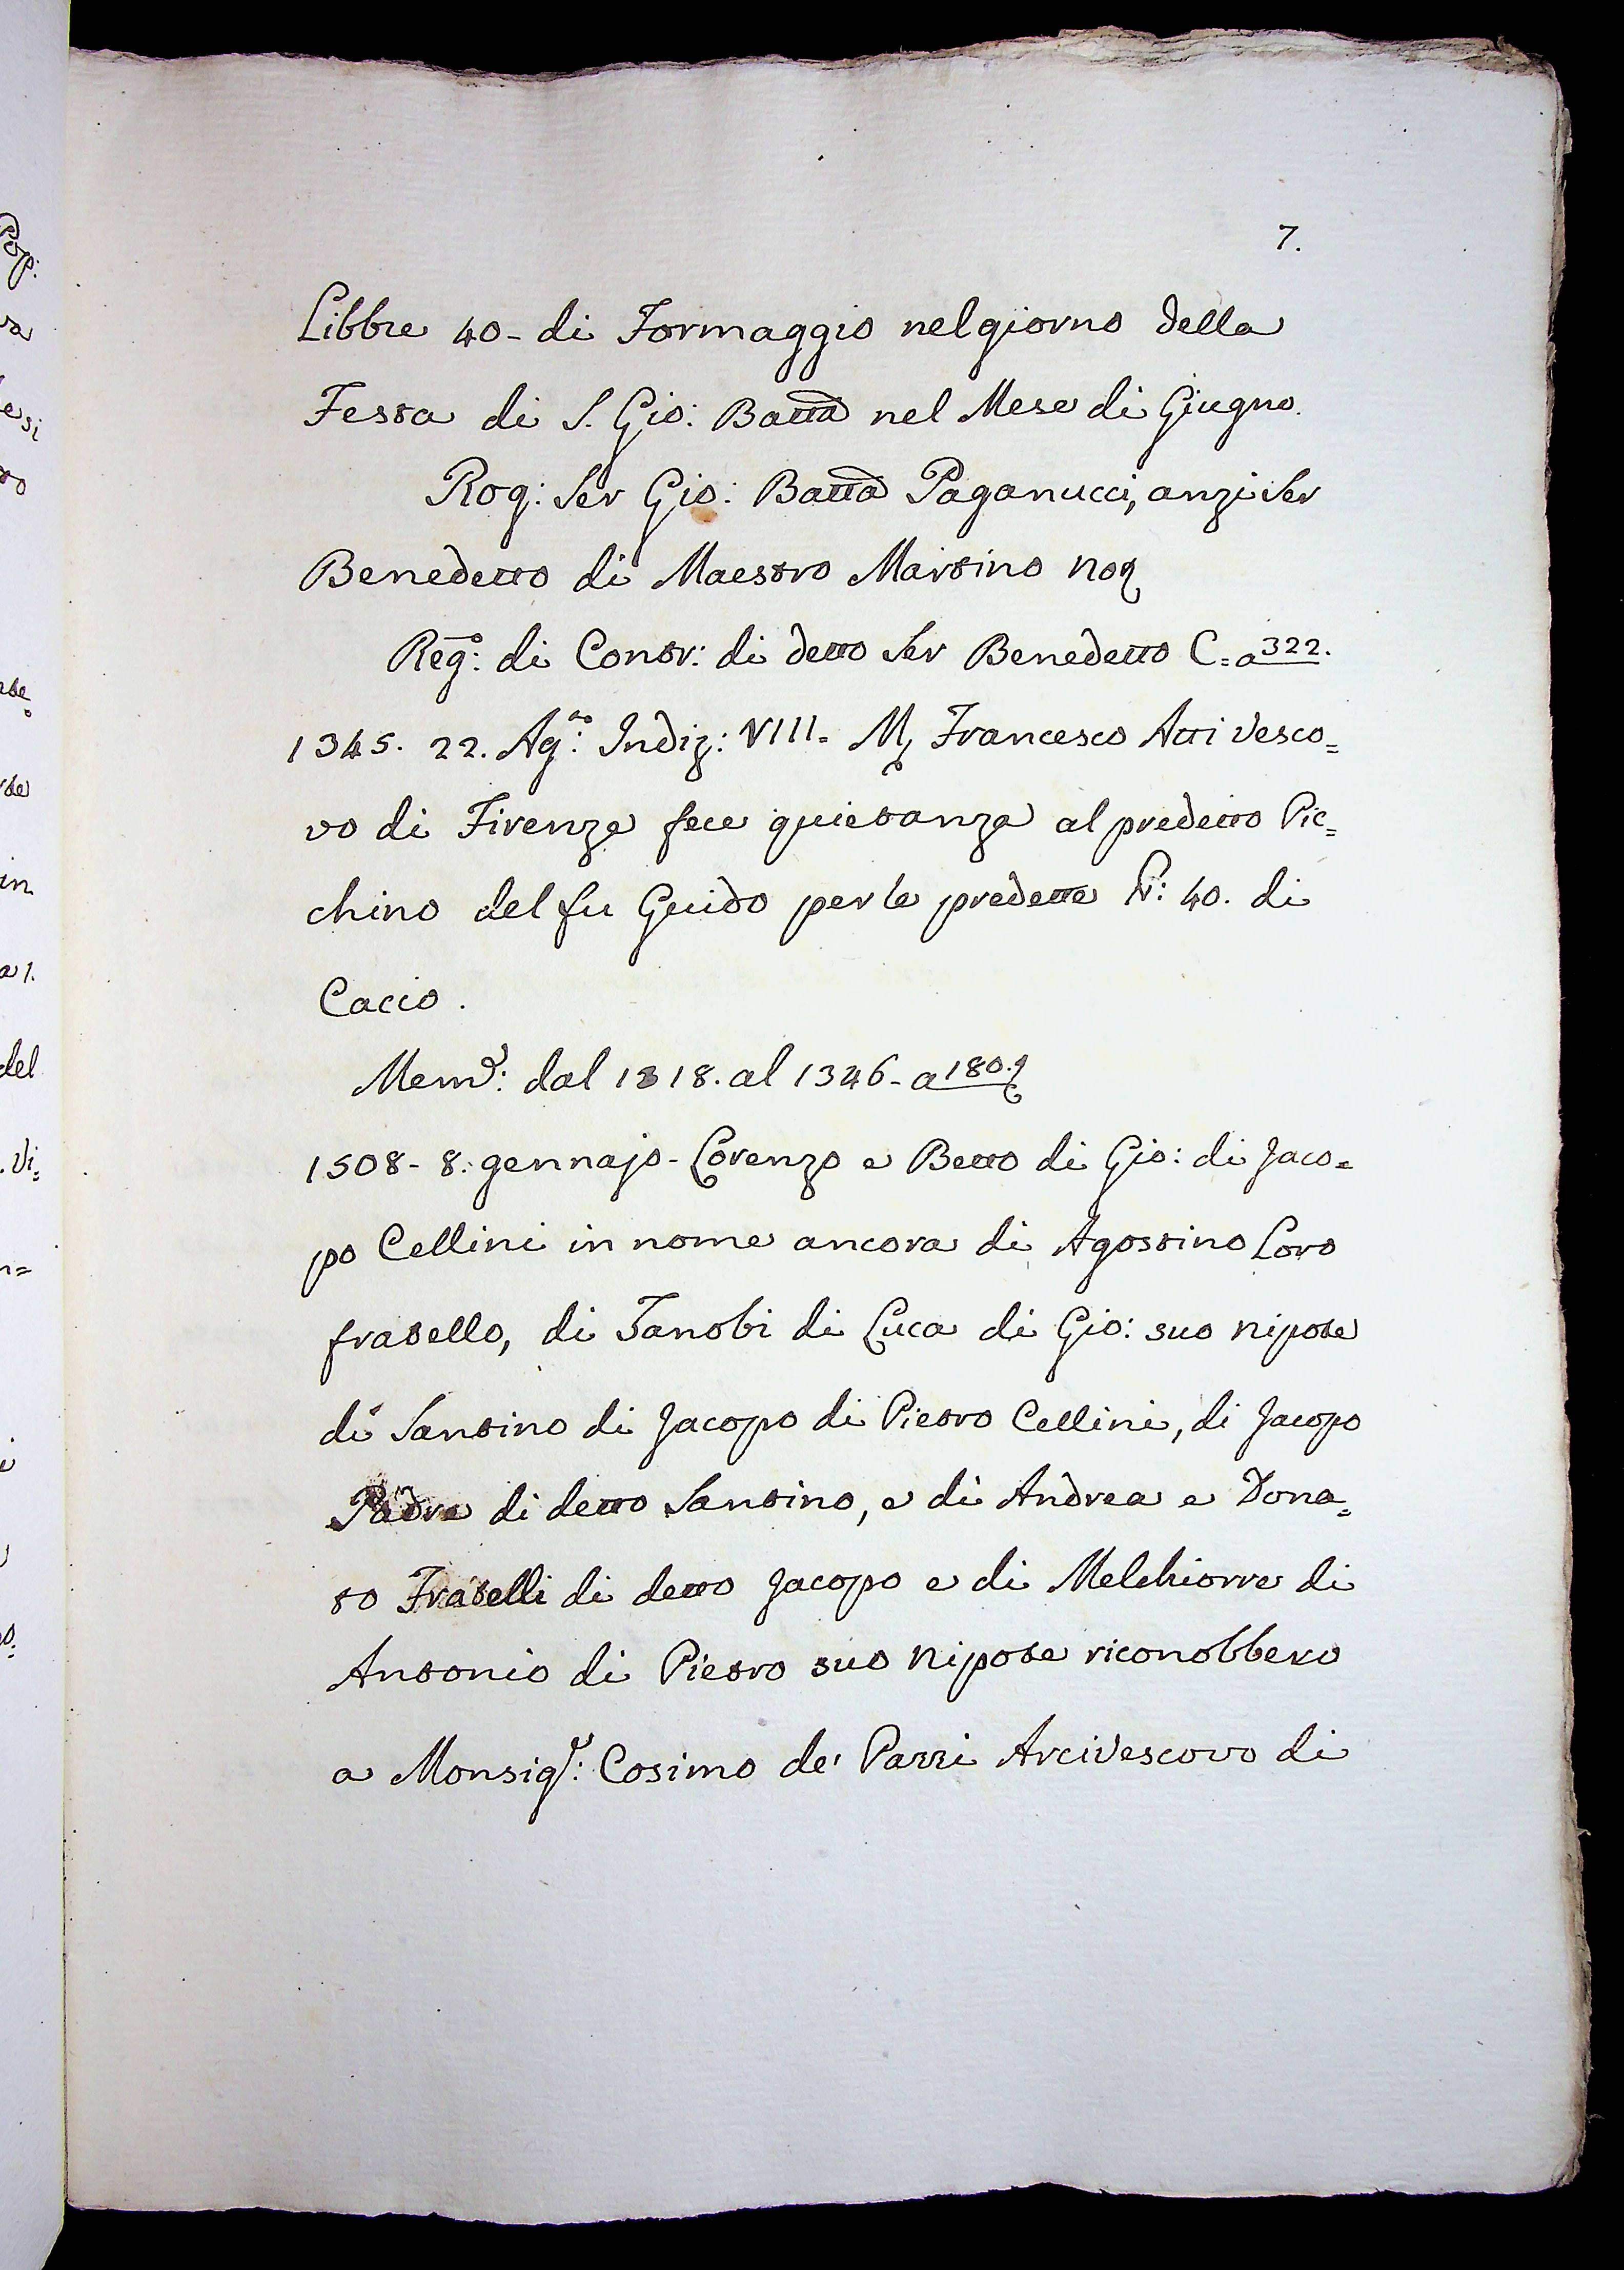 7.
Libbre 40- di Formaggio nel giorno della
Festa di S. Gio: Batta nel Mese di Giugno.
Rog: Ser Gio: Batta Paganucci, anzi Ser
Benedetto di Maestro Martino no
Reg:º di Contr: di detto Ser Benedetto C= a 322.
1345. 22. Ag:to Indiz: VIII= M, Francesco Atti Vesco=
vo di Firenze fece quietanza al predetto Pic=
chino del fu Guido per le predette lr: 40. di
Cacio.
Mem: dal 1318. al 1346- a 180.
1508- 8: gennajo- Lorenzo e Betto di Gio: di Jaco=
po Cellini in nome ancora di Agostino Loro
fratello, di Zanobi di Luca di Gio: suo nipote
di Santino di Jacopo di Pietro Cellini, di Jacopo
Padre di detto Santino, e di Andrea e Dona=
to Fratelli di detto Jacopo e di Melchiorre di
Antonio di Pietro suo nipote riconobbero
a Monsigr: Cosimo de' Pazzi Arcivescovo di
Pop:
del
Vi=